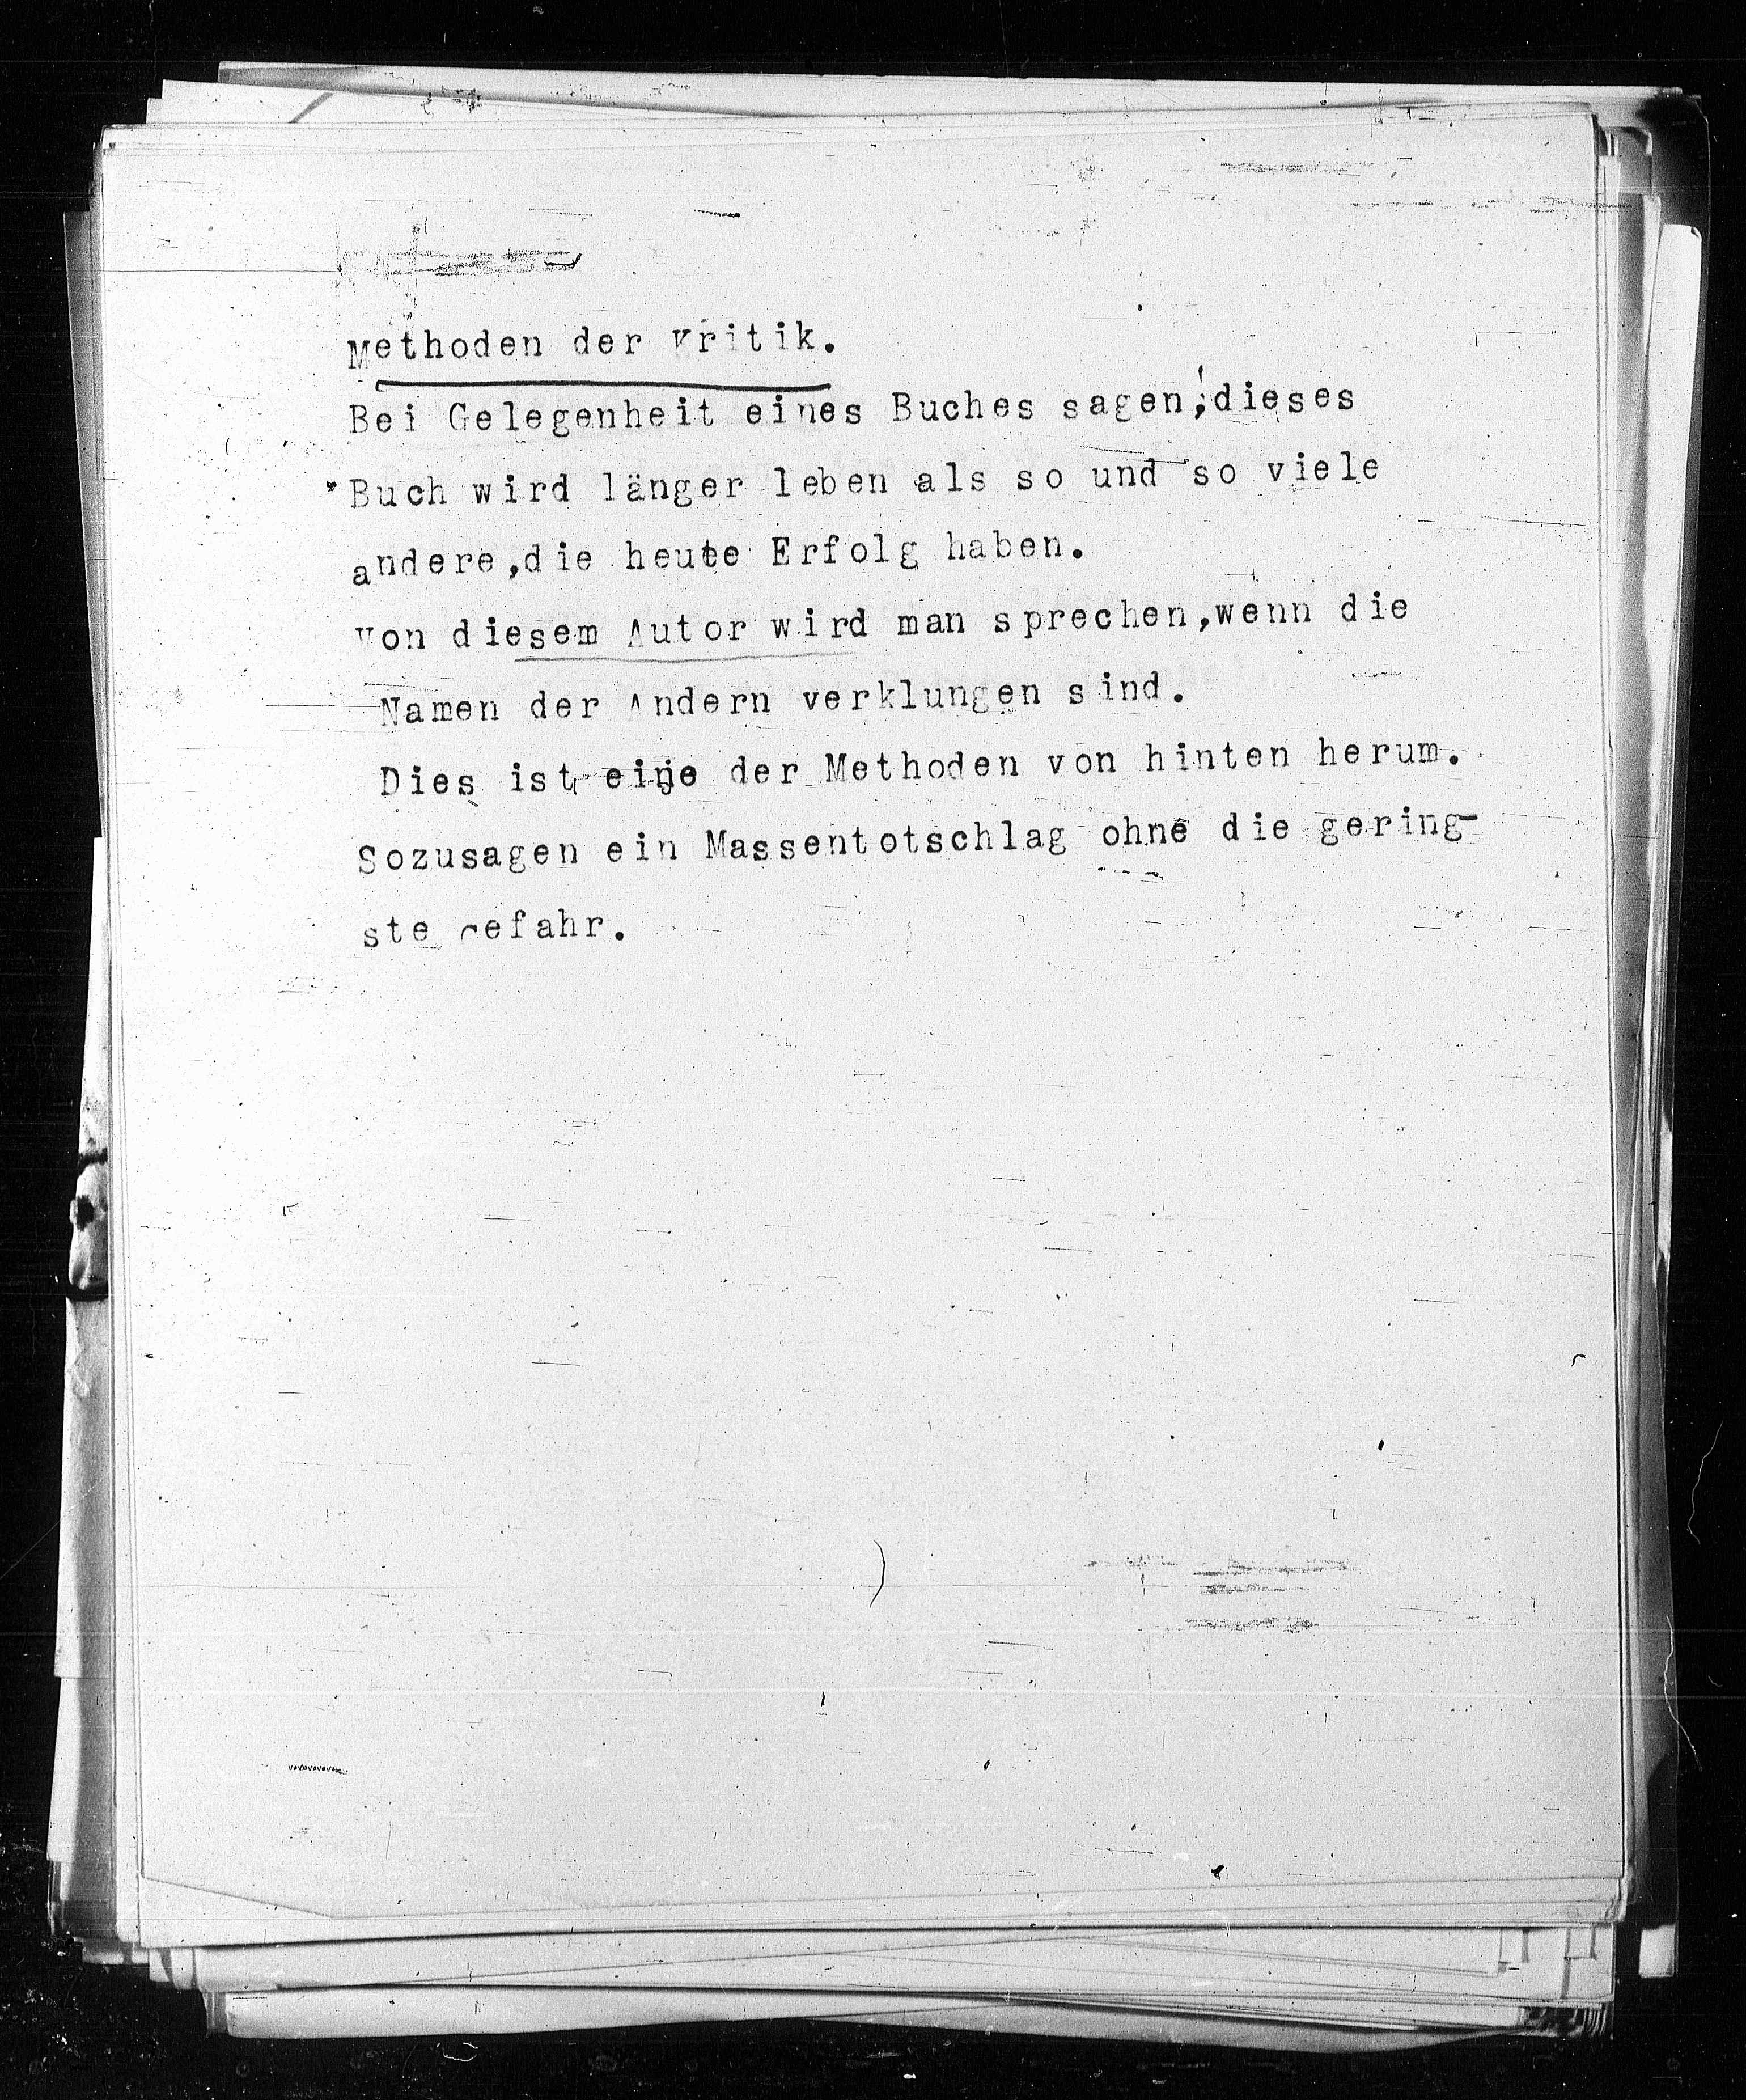 Methoden der Kritik.
Bei Gelegenheit eines Buches sagen: dieses
Buch wird länger leben als so und so viele
andere,die heute Erfolg haben.
Von diesem Autor wird man sprechen,wenn die
Namen der Andern verklungen sind.
Dies ist eine der Methoden von hinten herum.
Sozusagen ein Massentotschlag ohne die gering-
ste Gefahr.